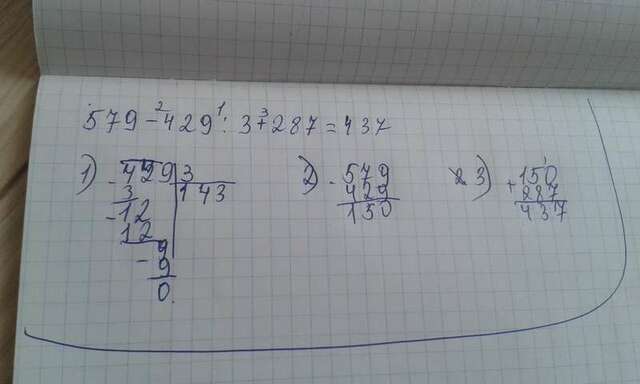 579 - 429 : 3 + 287 = 437
2 1 3
1) 2) 3)
- 429 | 3 - 579 + 150
3 143 429 287
- 12 150 437
12
- 9
9
0